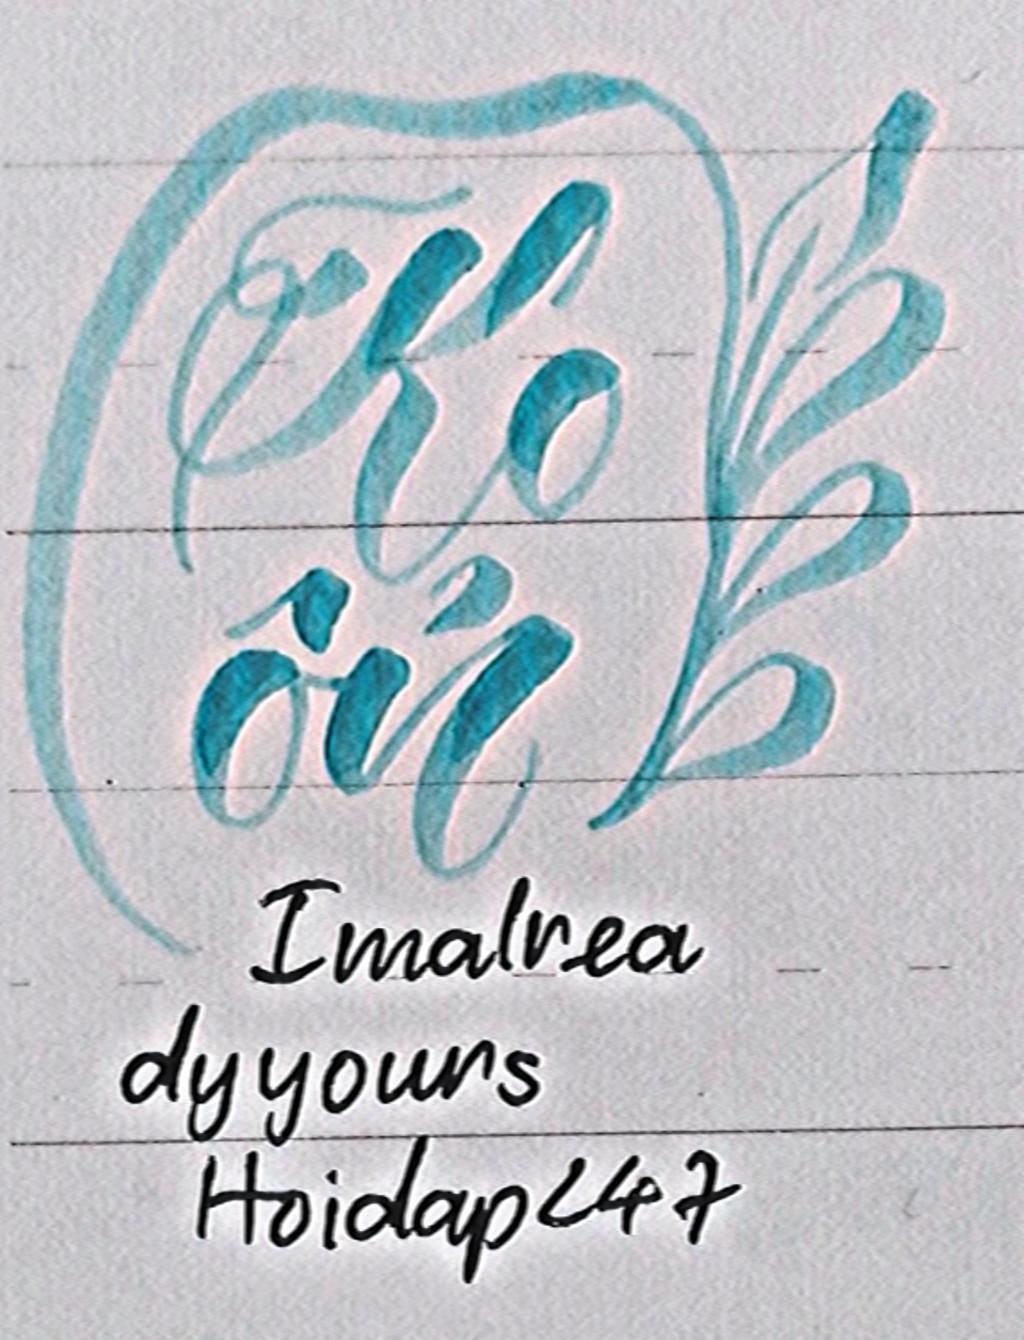 Ko
ổn
Imalrea
dyyours
Hoidap247